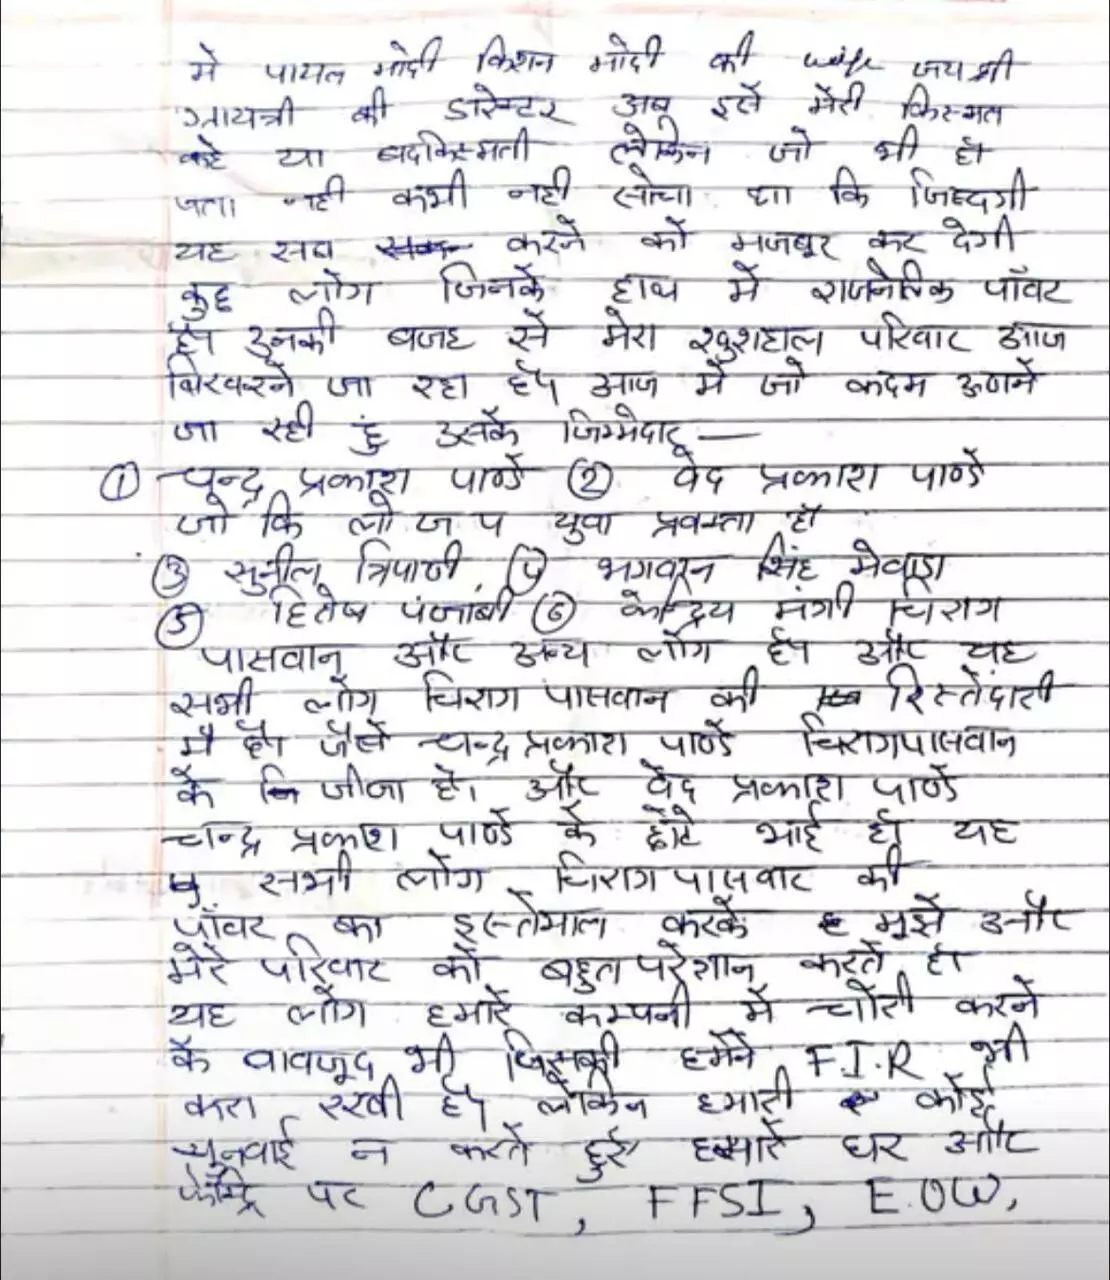 मे पायल मोदी किशन मोदी की wife जय श्री
गायत्री की डारेक्टर अब इसे मेरी किस्मत
कहे या बदकिस्मती लेकिन जो भी हो
पता नही कभी नही सोचा था कि जिन्दगी
यह सब करने को मजबूर कर देगी
कुछ लोग जिनके हाथ में राजनेतिक पॉवर
है उनकी बजह से मेरा खुशहाल परिवार आज
बिखरने जा रहा है आज मैं जो कदम उठाने
जा रही हुं उसके जिम्मेदार —
① चन्द्र प्रकाश पाण्डे ② वेद प्रकाश पाण्डे
जो कि लो ज प युवा प्रवक्ता है
③ सुनील त्रिपाठी ④ भगवान सिंह मेवाडा
⑤ हितेष पंजाबी ⑥ केन्द्रिय मंत्री चिराग
पासवान और अन्य लोग है और यह
सभी लोग चिराग पासवान की रिस्तेदारी
मै है जैसे चन्द्र प्रकाश पाण्डे चिराग पासवान
के जीजा है। और वेद प्रकाश पाण्डे
चन्द्र प्रकाश पाण्डे के छोटे भाई है यह
सभी लोग चिराग पासवाट की
पॉवर का इस्तेमाल करके मुझे और
मेरे परिवार को बहुत परेशान करते है।
यह लोग हमारे कम्पनी में चोरी करने
के वावजूद भी जिसकी हमने F.I.R भी
करा रखी है लेकिन हमारी कोई
सुनवाई न करते हुऐ हमारे घर और
पर CGST, FFSI, E.OW,